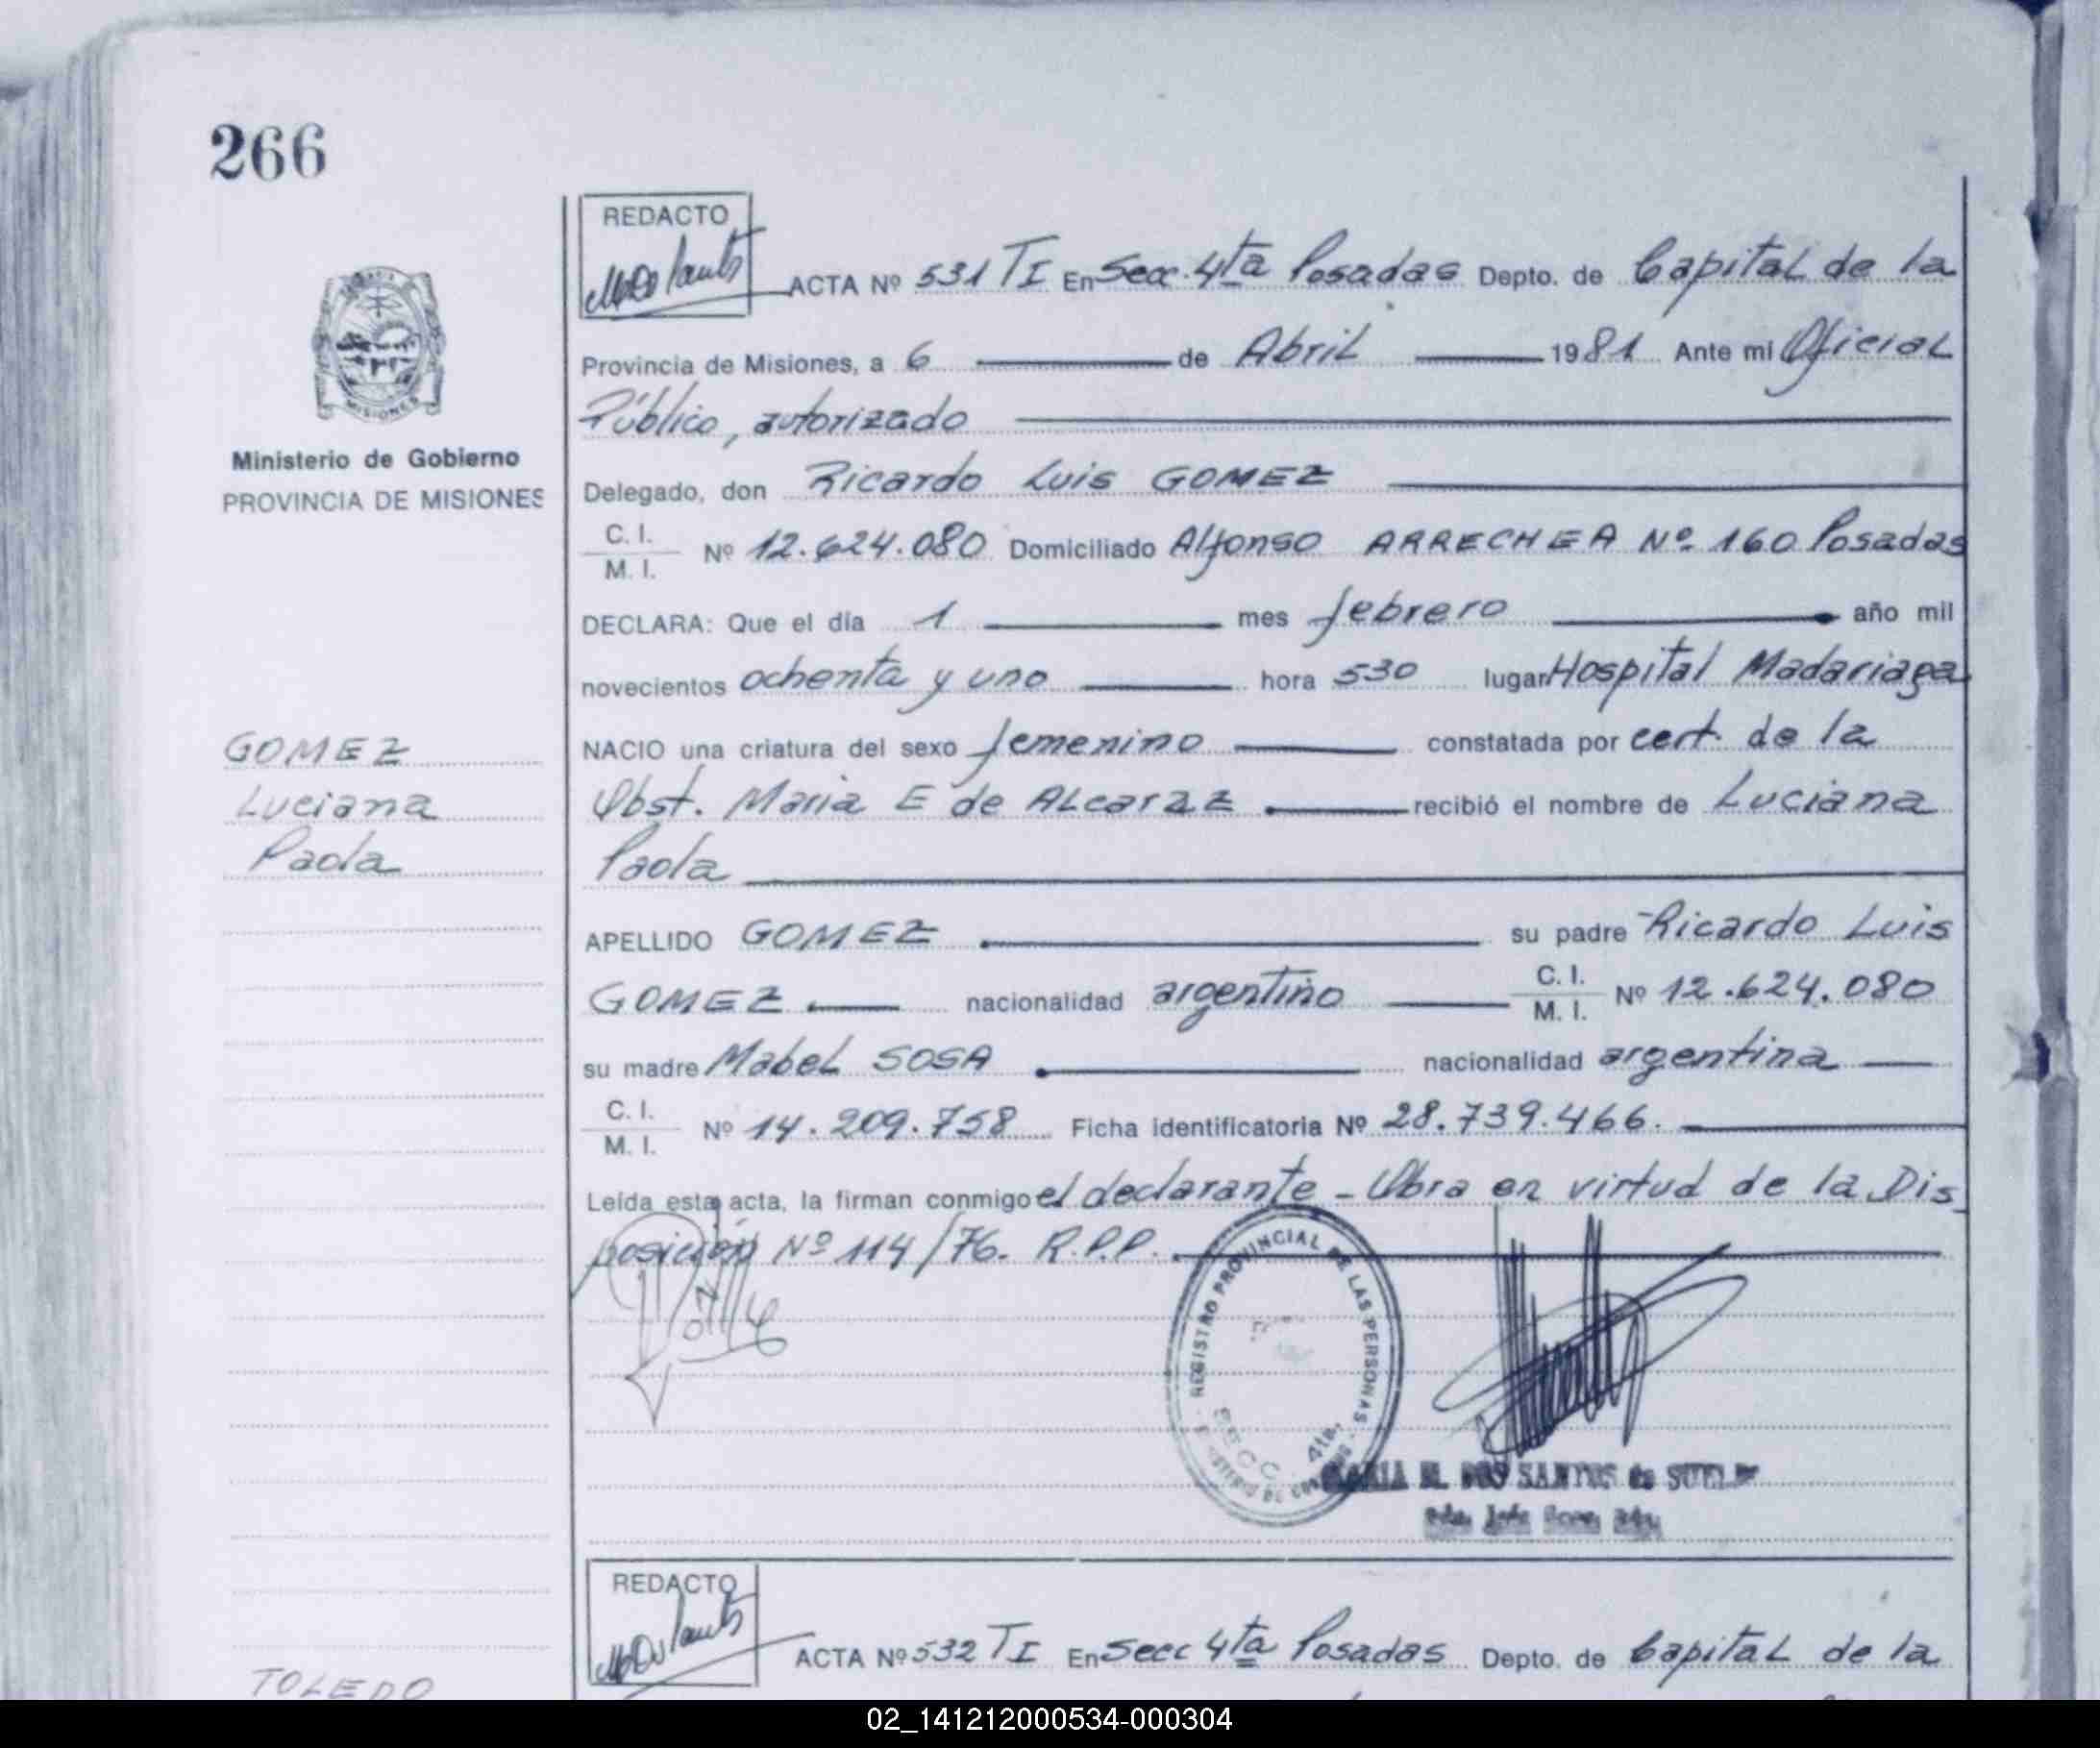 266
REDACTO
ACTA Nº 531 TI En Secc. 4ta Posadas Depto. de Capital de la
MISIONES
Provincia de Misiones, a 6 de Abril 1981 Ante mi Oficial
Público, autorizado
Ministerio de Gobierno
PROVINCIA DE MISIONES
Delegado, don Ricardo Luis GOMEZ
C. I.
M. I.
Nº 12.624.080 Domiciliado Alfonso ARRECHEA Nº 160 Posadas
DECLARA: Que el día 1 mes febrero año mil
novecientos ochenta y uno hora 530 lugar Hospital Madariaga
GOMEZ
Luciana
Paola
NACIO una criatura del sexo femenino constatada por cert. de la
Obst. Maria E de ALcaraz recibió el nombre de Luciana
Paola
APELLIDO GOMEZ su padre Ricardo Luis
GOMEZ nacionalidad argentino C. I. M. I. Nº 12.624.080
su madre Mabel SOSA nacionalidad argentina
C. I.
M. I.
Nº 14.209.758 Ficha identificatoria Nº 28.739.466.
Leída esta acta, la firman conmigo el declarante - Obra en virtud de la Dis_
posición Nº 114/76. R.P.P.
REGISTRO PROVINCIAL DE LAS PERSONAS
SECC. 4ta.
MARIA M. DOS SANTOS de
REDACTO
ACTA Nº 532 TI En Secc 4ta Posadas Depto. de Capital de la
TOLEDO
02_141212000534-000304